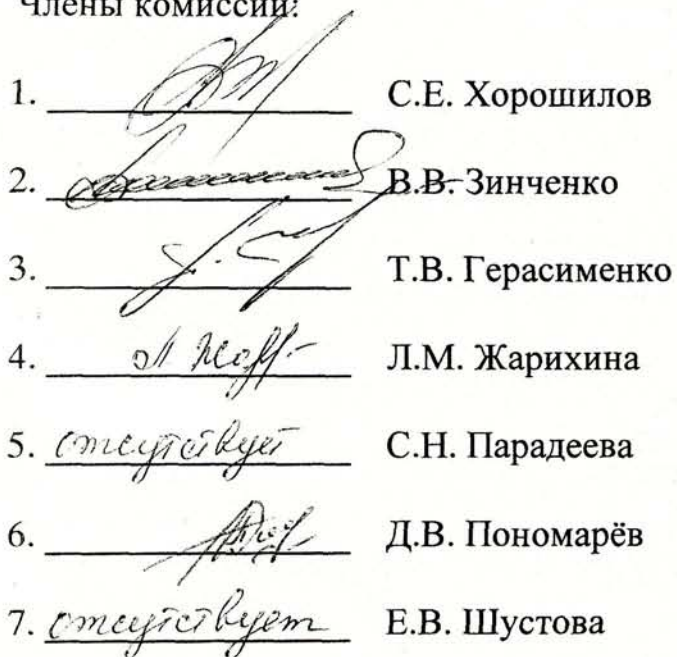 Члены комиссии:
1. С.Е. Хорошилов
2. В.В. Зинченко
3. Т.В. Герасименко
4. Л.М. Жарихина
5. отсутствует С.Н. Парадеева
6. Д.В. Пономарёв
7. отсутствует Е.В. Шустова